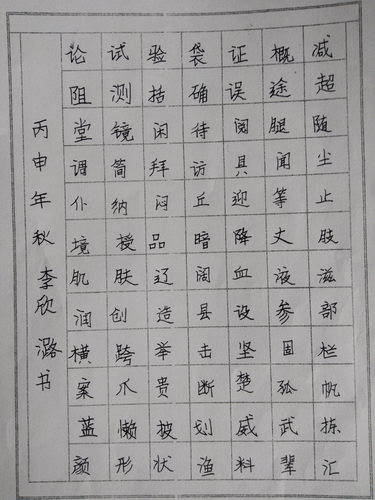 论试验袋证概减
阻测括确误途超
堂镜闲待阅腿随
调简拜访具闻尘
仆纳闷丘迎等止
境授品暗降丈肢
肌肤辽阔血液滋
润创造县设参部
横跨举击坚固栏
案爪贵断楚孤帆
蓝懒披划威武拣
颜形状渔料辈汇
丙申年秋李欣潞书